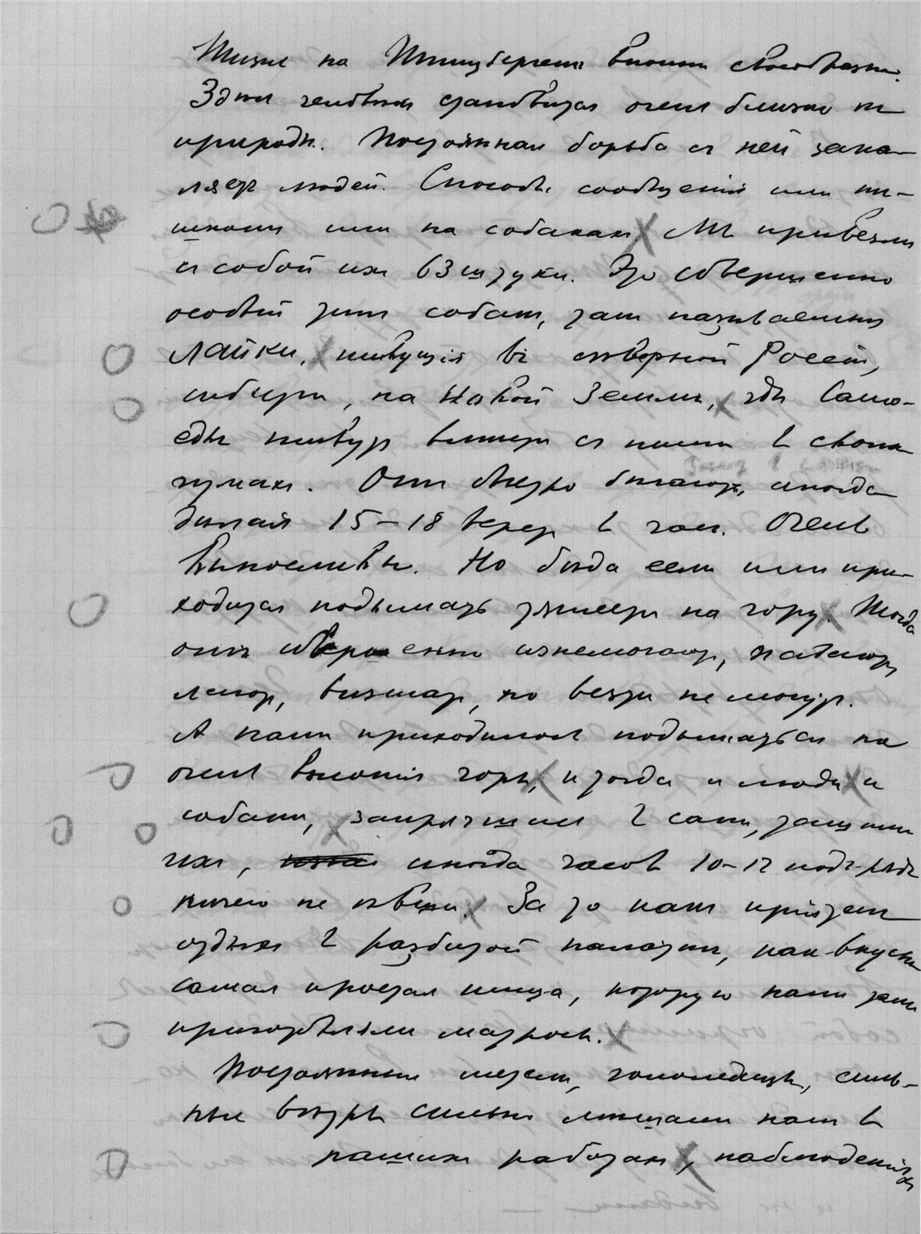 Жизнь на Шпицбергенѣ вполнѣ своеобразна.
Здѣсь человѣкъ становится очень близко къ
природѣ. Постоянная борьба съ ней зака-
ляетъ людей. Способъ сообщенія или пѣ-
шкомъ или на собакахъ. Мы привезли
съ собой ихъ 63 штуки. Это совершенно
особый типъ собакъ, такъ называемыя
лайки, живущія въ сѣверной Россіи,
Сибири, на Новой Землѣ, гдѣ Само-
ѣды живутъ вмѣстѣ съ ними въ своихъ
чумахъ. Онѣ быстро бѣгаютъ, иногда
дѣлая 15–18 верстъ въ часъ. Очень
выносливы. Но бѣда если имъ при-
ходится подымать тяжести на гору. Тогда
онѣ совершенно изнемогаютъ, падаютъ,
лаютъ, визжатъ, но везти не могутъ.
А намъ приходилось подыматься на
очень высокія горы, и тогда и люди и
собаки, запрягшись въ сани, тащили
ихъ, иногда часовъ 10–12 подъ-рядъ
ничего не ѣвши. За то какъ пріятенъ
отдыхъ въ разбитой палаткѣ, какъ вкусна
самая простая пища, которую намъ тамъ
приготовляли матросы.
Постоянныя метели, гололедицы, силь-
ные вѣтры сильно мѣшали намъ въ
нашихъ работахъ, наблюденіяхъ